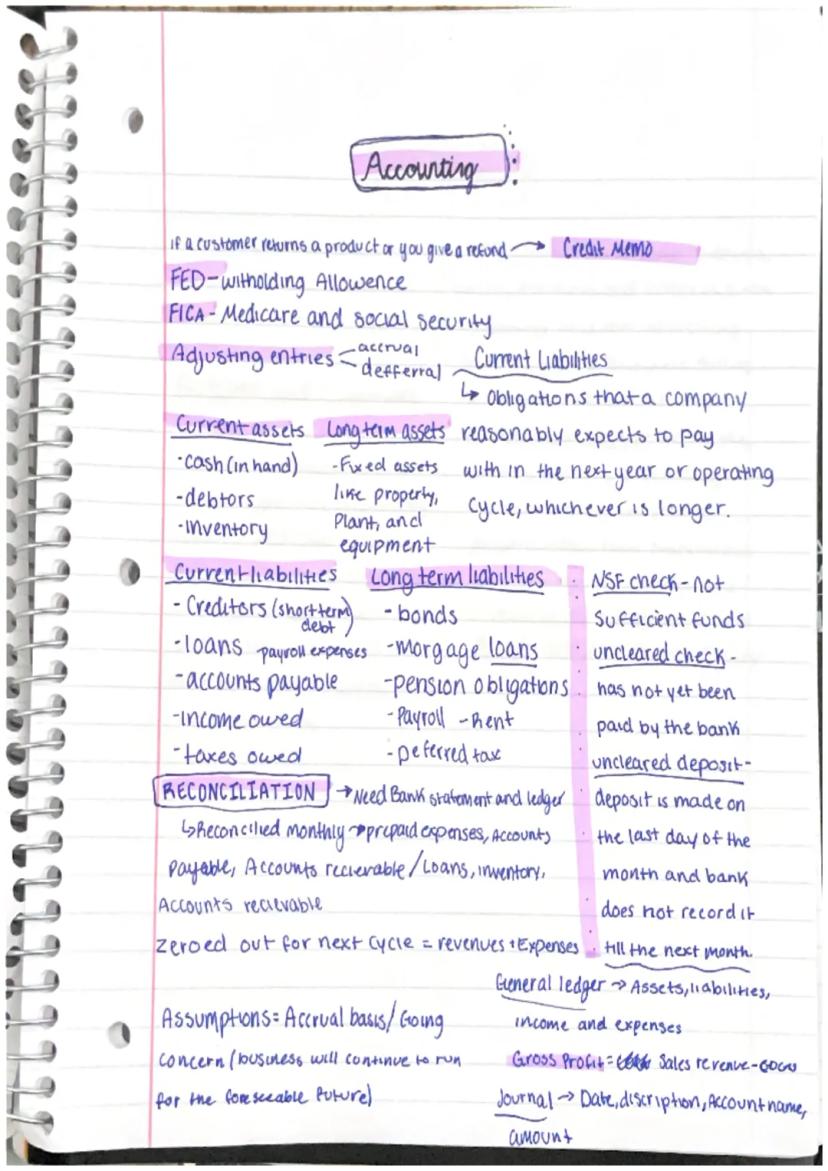 Accounting
if a customer returns a product or you give a refund → Credit Memo
FED - witholding Allowence
FICA - Medicare and social security
Adjusting entries < accrual
defferral
Current Liabilities
↳ Obligations that a company
reasonably expects to pay
with in the next year or operating
Cycle, whichever is longer.
Current assets
- cash (in hand)
- debtors
- inventory
Long term assets
- Fixed assets
like property,
Plant, and
equipment
Current liabilities
- Creditors (short term
debt)
- loans payroll expenses
- accounts payable
- income owed
- taxes owed
Long term liabilities
- bonds
- morgage loans
- pension obligations
- Payroll - Rent
- Deferred tax
NSF check - not
Sufficient funds
uncleared check -
has not yet been
paid by the bank
uncleared deposit -
deposit is made on
the last day of the
month and bank
does not record it
till the next month.
RECONCILIATION → Need Bank statement and ledger
↳ Reconcilied monthly → prepaid expenses, Accounts
payable, Accounts recievable / Loans, inventory,
Accounts recievable
zeroed out for next cycle = revenues + Expenses
Assumptions = Accrual basis / Going
concern (business will continue to run
for the foreseeable future)
General ledger → Assets, liabilities,
income and expenses
Gross Profit = Sales revenue - COGS
Journal → Date, discription, Account name,
amount